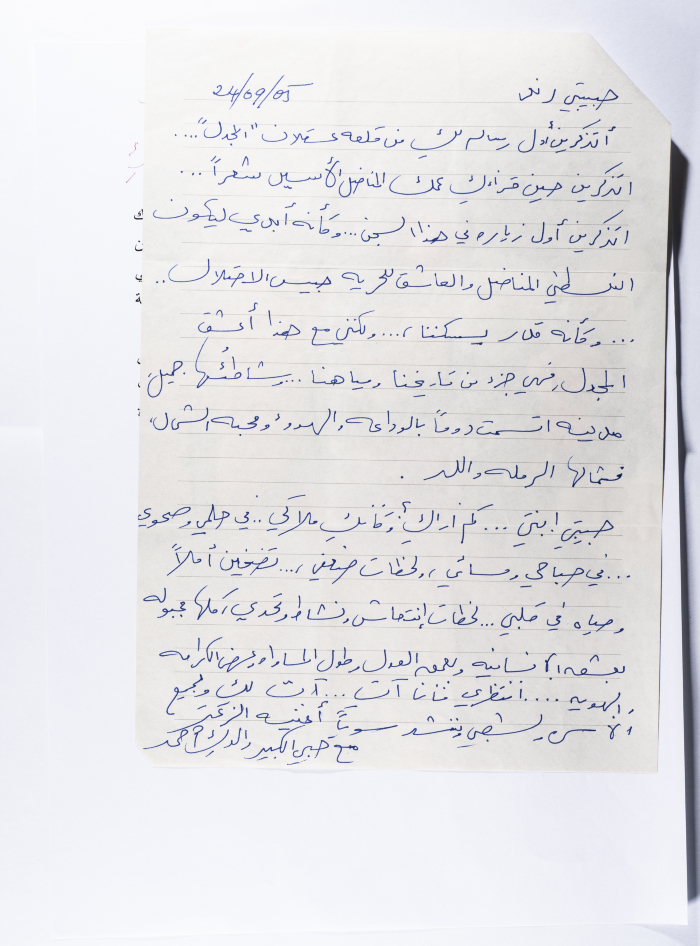 24/09/05
حبيبتي رند
أتذكرين أول رساله لكِ من قلعه عسقلان "المجدل"....
اتذكرين حين قراءتك عمك المناضل الأسير شعراً...
اتذكرين أول زياره في هذا السجن... وكأنه أبدي ليكون
الفلسطيني المناضل والعاشق للحريه حبيس الاحتلال..
... وكأنه قدر يسكننا،... ولكنني مع هذا أعشق
المجدل، فهي جزء من تاريخنا ومياهنا... وشاطئُها جميل
مدينه اتسمت دوماً بالوداعه والهدوء ومحبه الشمال،
فشمالها الرمله واللد.
حبيبتي ابنتي... كم اراكِ وكأنكِ ملاكي.. في حلمي وصحوي
... في صباحي ومسائي، ولحظات ضعفي،... تضخين أملاً
وحياه في قلبي... لحظات إنتعاش ونشاط وتحدي، كلها مجبوله
بعشقه الانسانيه وبعمق العدل وطول المساواه وعرض الكرامه
والهويه.... انتظري فأنا آتٍ... آتٍ لكِ ولجميع
الأسره ولشعبي وننشد سوياً أغنيه
مع حبي الكبير والدك احمد